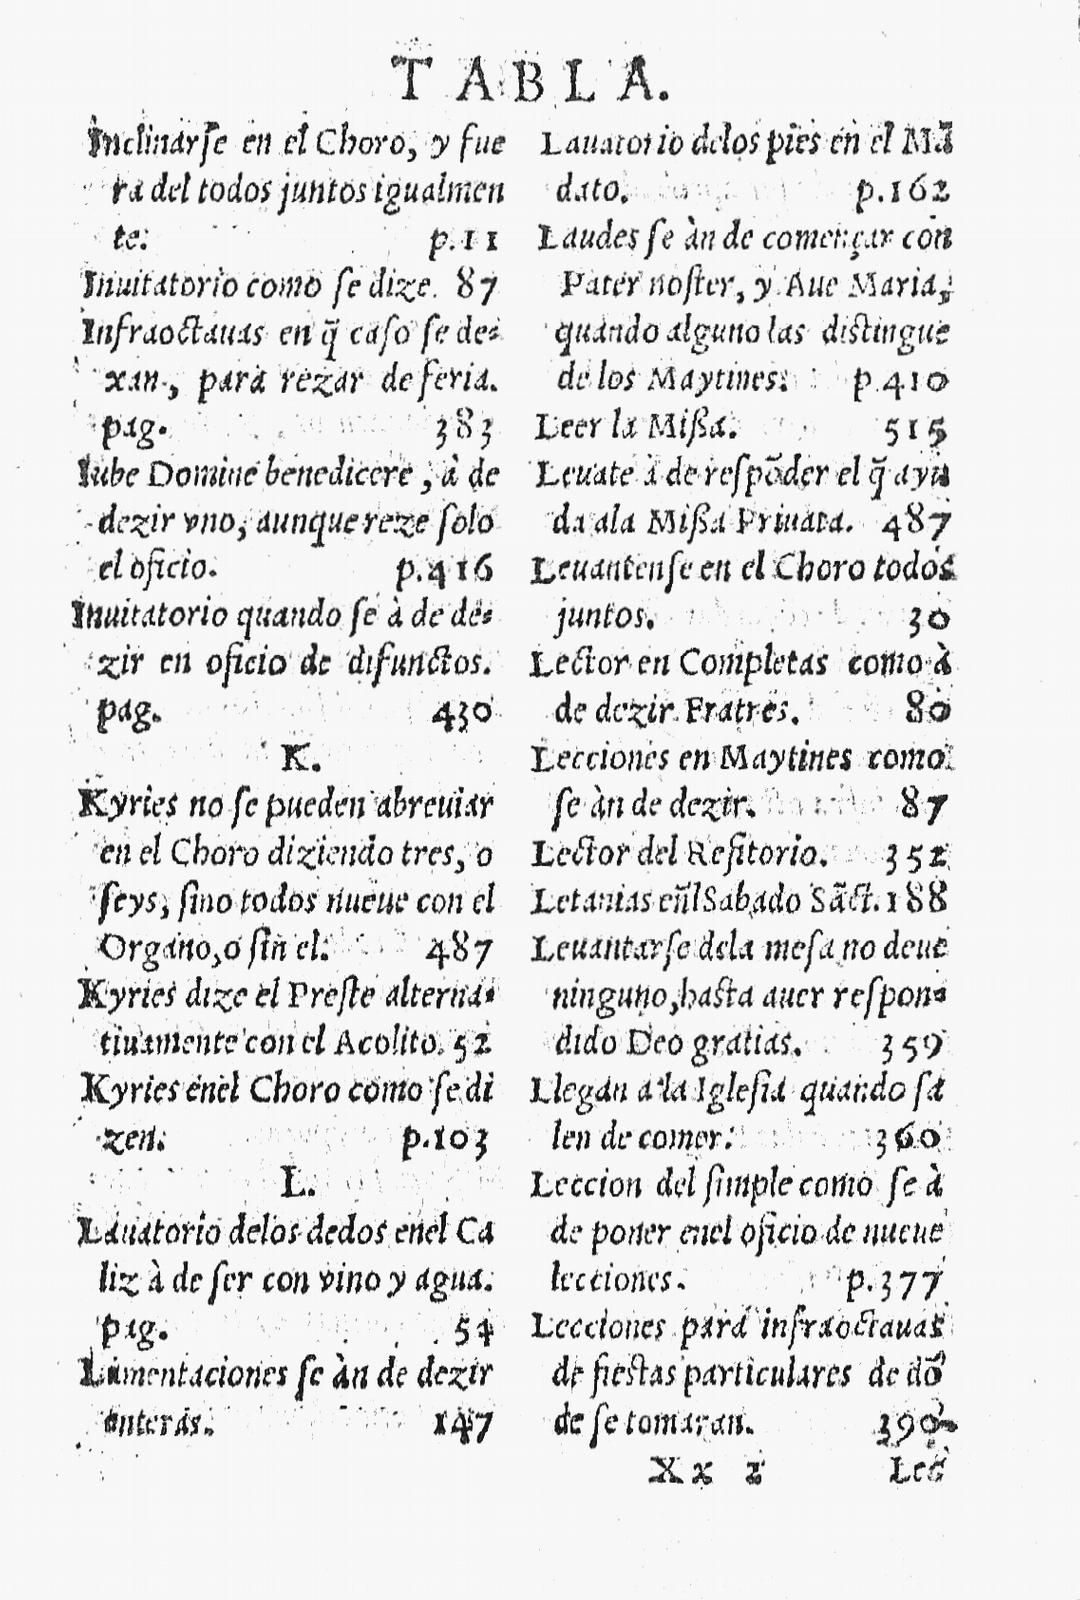 TABLA.
Inclinarſe en el Choro, y fue
ra del todos juntos igualmen
te: p.11
Inuitatorio como ſe dize. 87
Infraoctauas en q̃ caſo ſe de-
xan, para rezar de feria.
pag. 383
Iube Domine benedicere, à de
dezir vno, aunque reze ſolo
el oficio. p.416
Inuitatorio quando ſe à de de-
zir en oficio de difunctos.
pag. 430
K.
Kyries no ſe pueden abreuiar
en el Choro diziendo tres, o
ſeys, ſino todos nueue con el
Organo, o ſin el. 487
Kyries dize el Preſte alterna-
tiuamente con el Acolito. 52
Kyries enel Choro como ſe di
zen. p.103
L.
Lauatorio delos dedos enel Ca
liz à de ſer con vino y agua.
pag. 54
Lamentaciones ſe àn de dezir
enteras. 147
Lauatorio delos pies en el Mā
dato. p.162
Laudes ſe àn de començar con
Pater noſter, y Aue Maria,
quando alguno las diſtingue
de los Maytines. p.410
Leer la Miſſa. 515
Leuate à de reſpõder el q̃ ayu
da ala Miſſa Priuata. 487
Leuantenſe en el Choro todos
juntos. 30
Lector en Completas como à
de dezir Fratres. 80
Lecciones en Maytines como
ſe àn de dezir. 87
Lector del Refitorio. 352
Letanias eñl Sabado Sãct. 188
Leuantarſe dela meſa no deue
ninguno, haſta auer reſpon-
dido Deo gratias. 359
Llegan a la Igleſia quando ſa
len de comer. 360
Leccion del ſimple como ſe à
de poner enel oficio de nueue
lecciones. p.377
Lecciones para infraoctauas
de fieſtas particulares de dõ
de ſe tomaran. 390
Xx 2 Lec